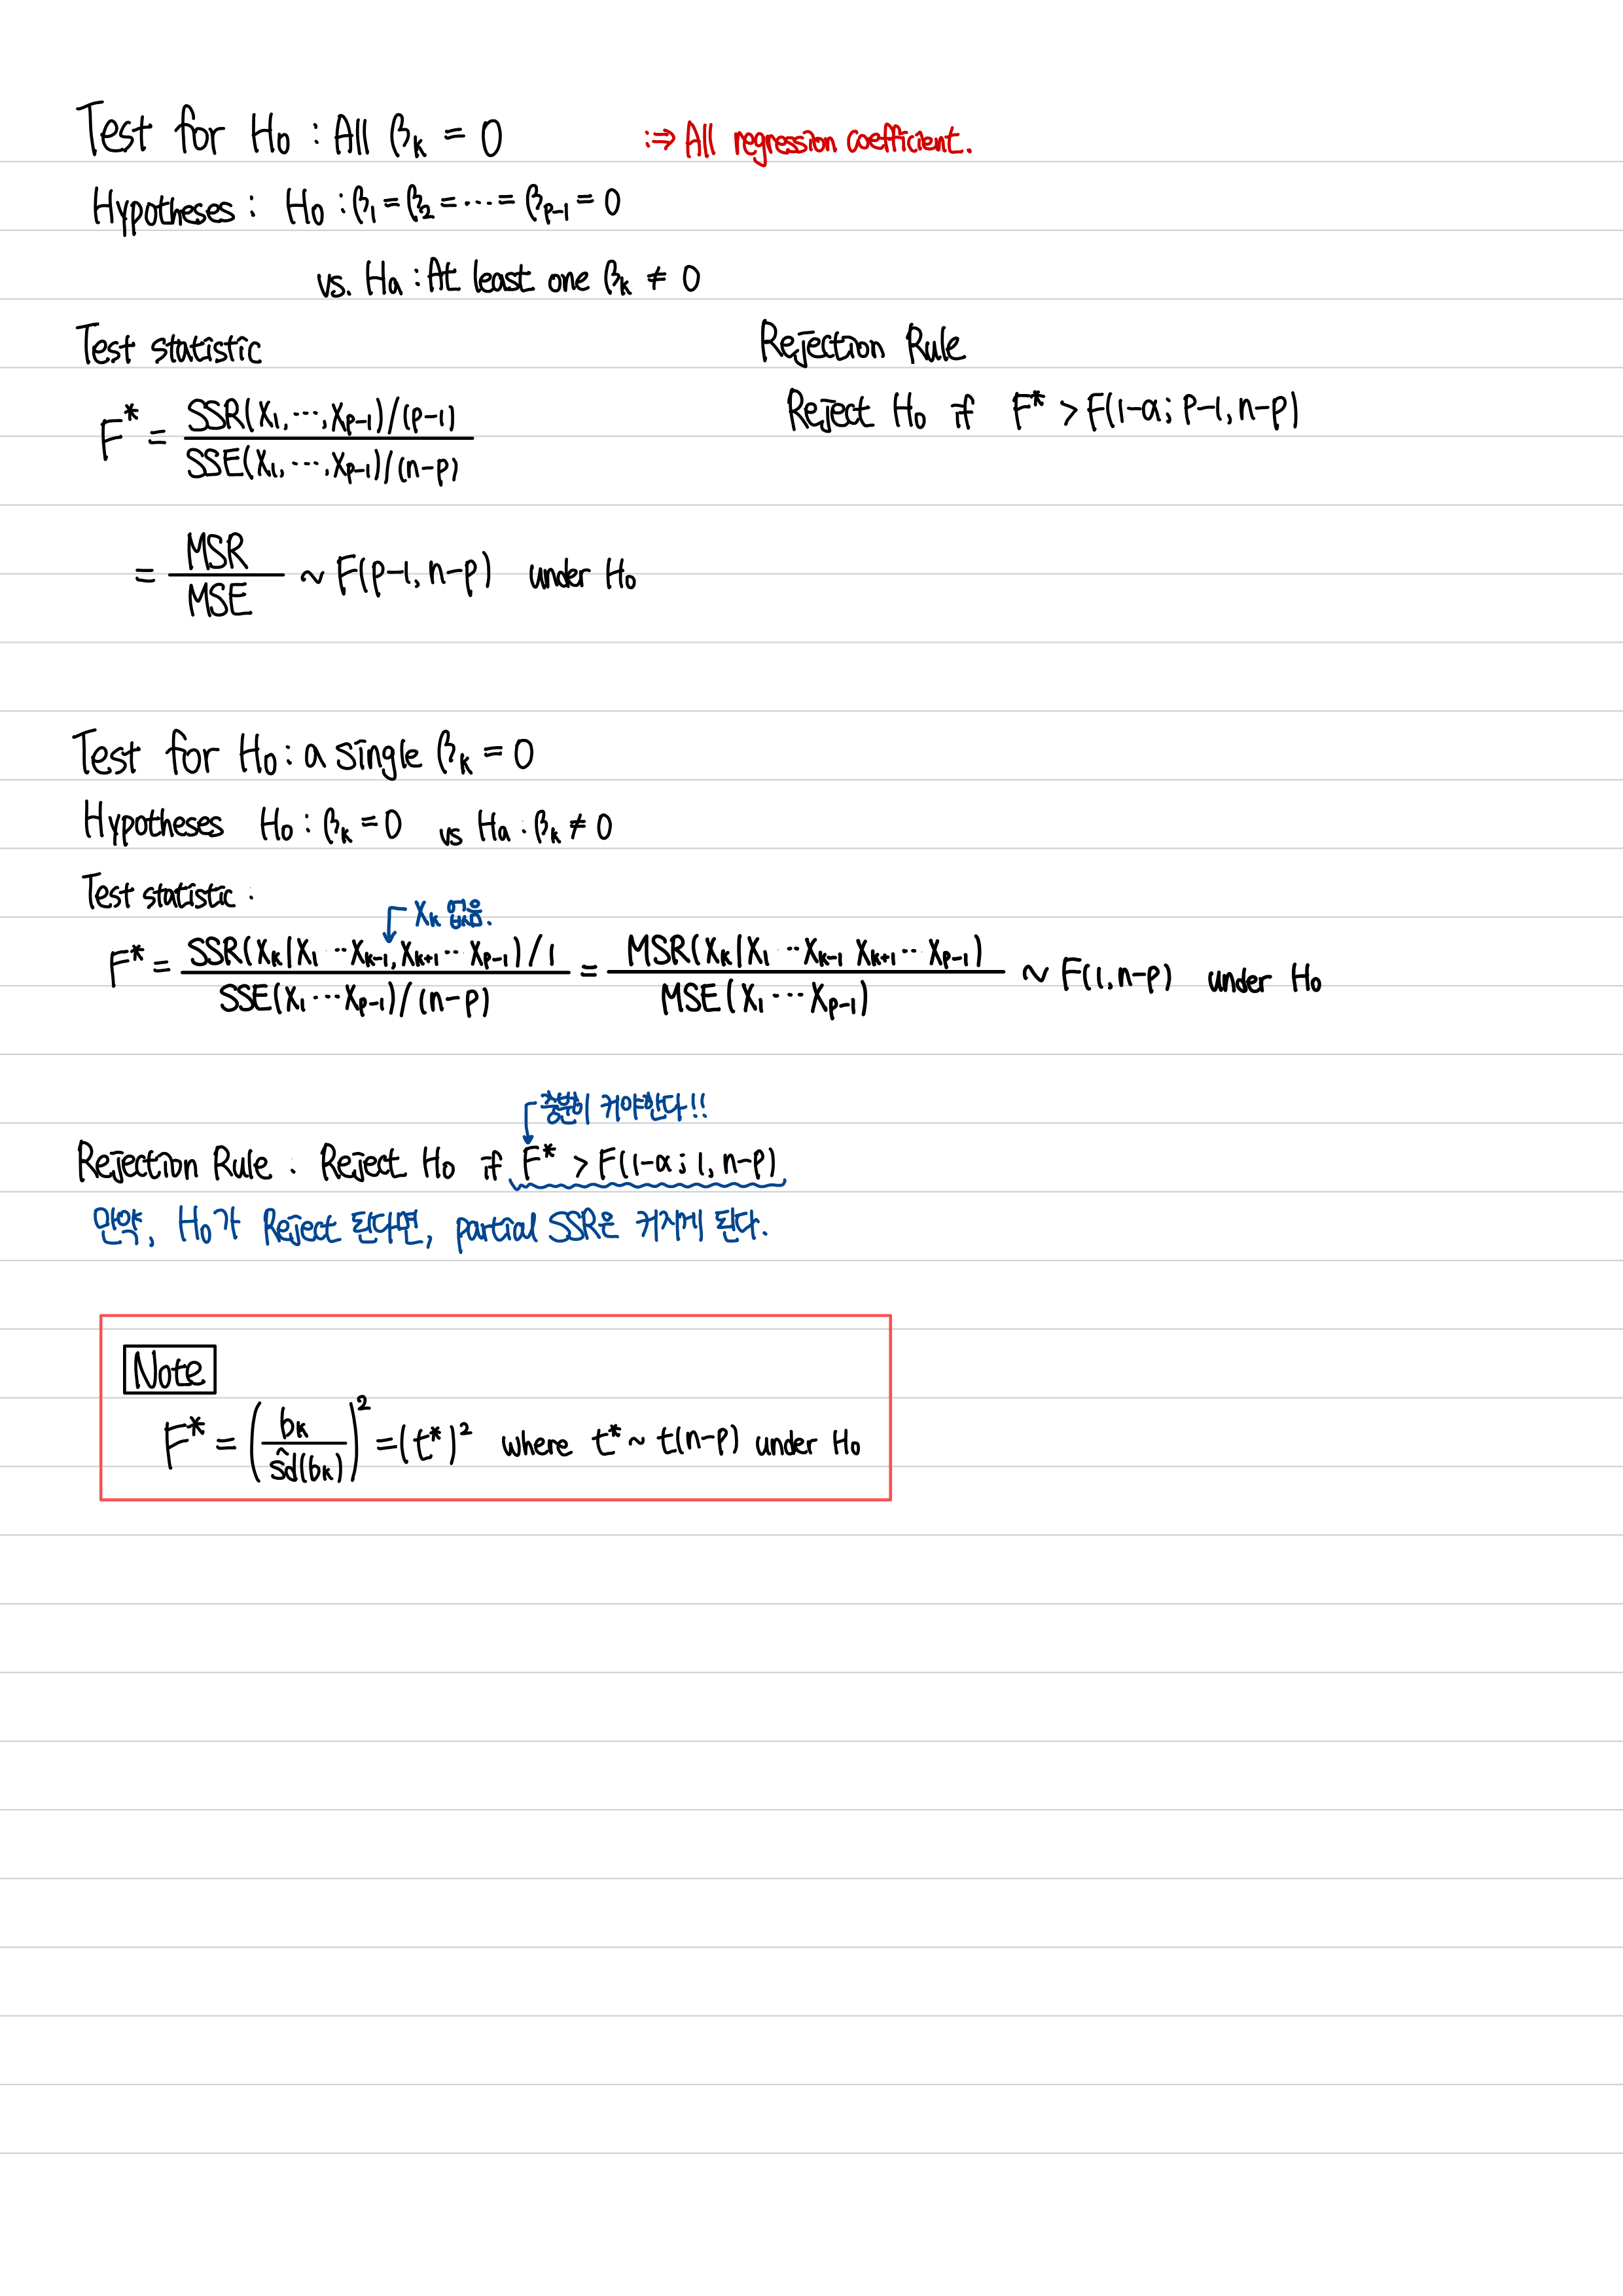 Test for H₀ : All βₖ = 0 :⇒ All regression coefficient.
Hypotheses : H₀ : β₁ = β₂ = ⋯ = βₚ₋₁ = 0
vs. Ha : At least one βₖ ≠ 0
Test statistic
F* = SSR(X₁, ⋯, Xₚ₋₁)/(p-1) / SSE(X₁, ⋯, Xₚ₋₁)/(n-p)
= MSR / MSE ~ F(p-1, n-p) under H₀
Rejection Rule
Reject H₀ if F* > F(1-α; P-1, n-p)
Test for H₀ : a single βₖ = 0
Hypotheses H₀ : βₖ = 0 vs Ha : βₖ ≠ 0
Test statistic :
Xₖ 없음.
F* = SSR(Xₖ|X₁ ⋯ Xₖ₋₁, Xₖ₊₁ ⋯ Xₚ₋₁)/1 / SSE(X₁ ⋯ Xₚ₋₁)/(n-p) = MSR(Xₖ|X₁ ⋯ Xₖ₋₁ Xₖ₊₁ ⋯ Xₚ₋₁) / MSE(X₁ ⋯ Xₚ₋₁) ~ F(1, n-p) under H₀
증분이 커야한다!!
Rejection Rule : Reject H₀ if F* > F(1-α; 1, n-p)
만약, H₀가 Reject 된다면, partial SSR은 커지게 된다.
Note
F* = (bₖ / ŝd(bₖ))² = (t*)² where t* ~ t(n-p) under H₀